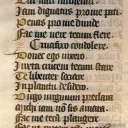 Tui nati vulnerati
Iam dignatus pro me pati
Penas pro me divide
Fac me vere tecum flere
Crucifixo condolere
Donec ego vixero
Iuxta crucem tecum stare
Te libenter sociare
In planctu desidero
Virgo virginum preclara
Michi iam non sis amara
Fac me tecum plangere